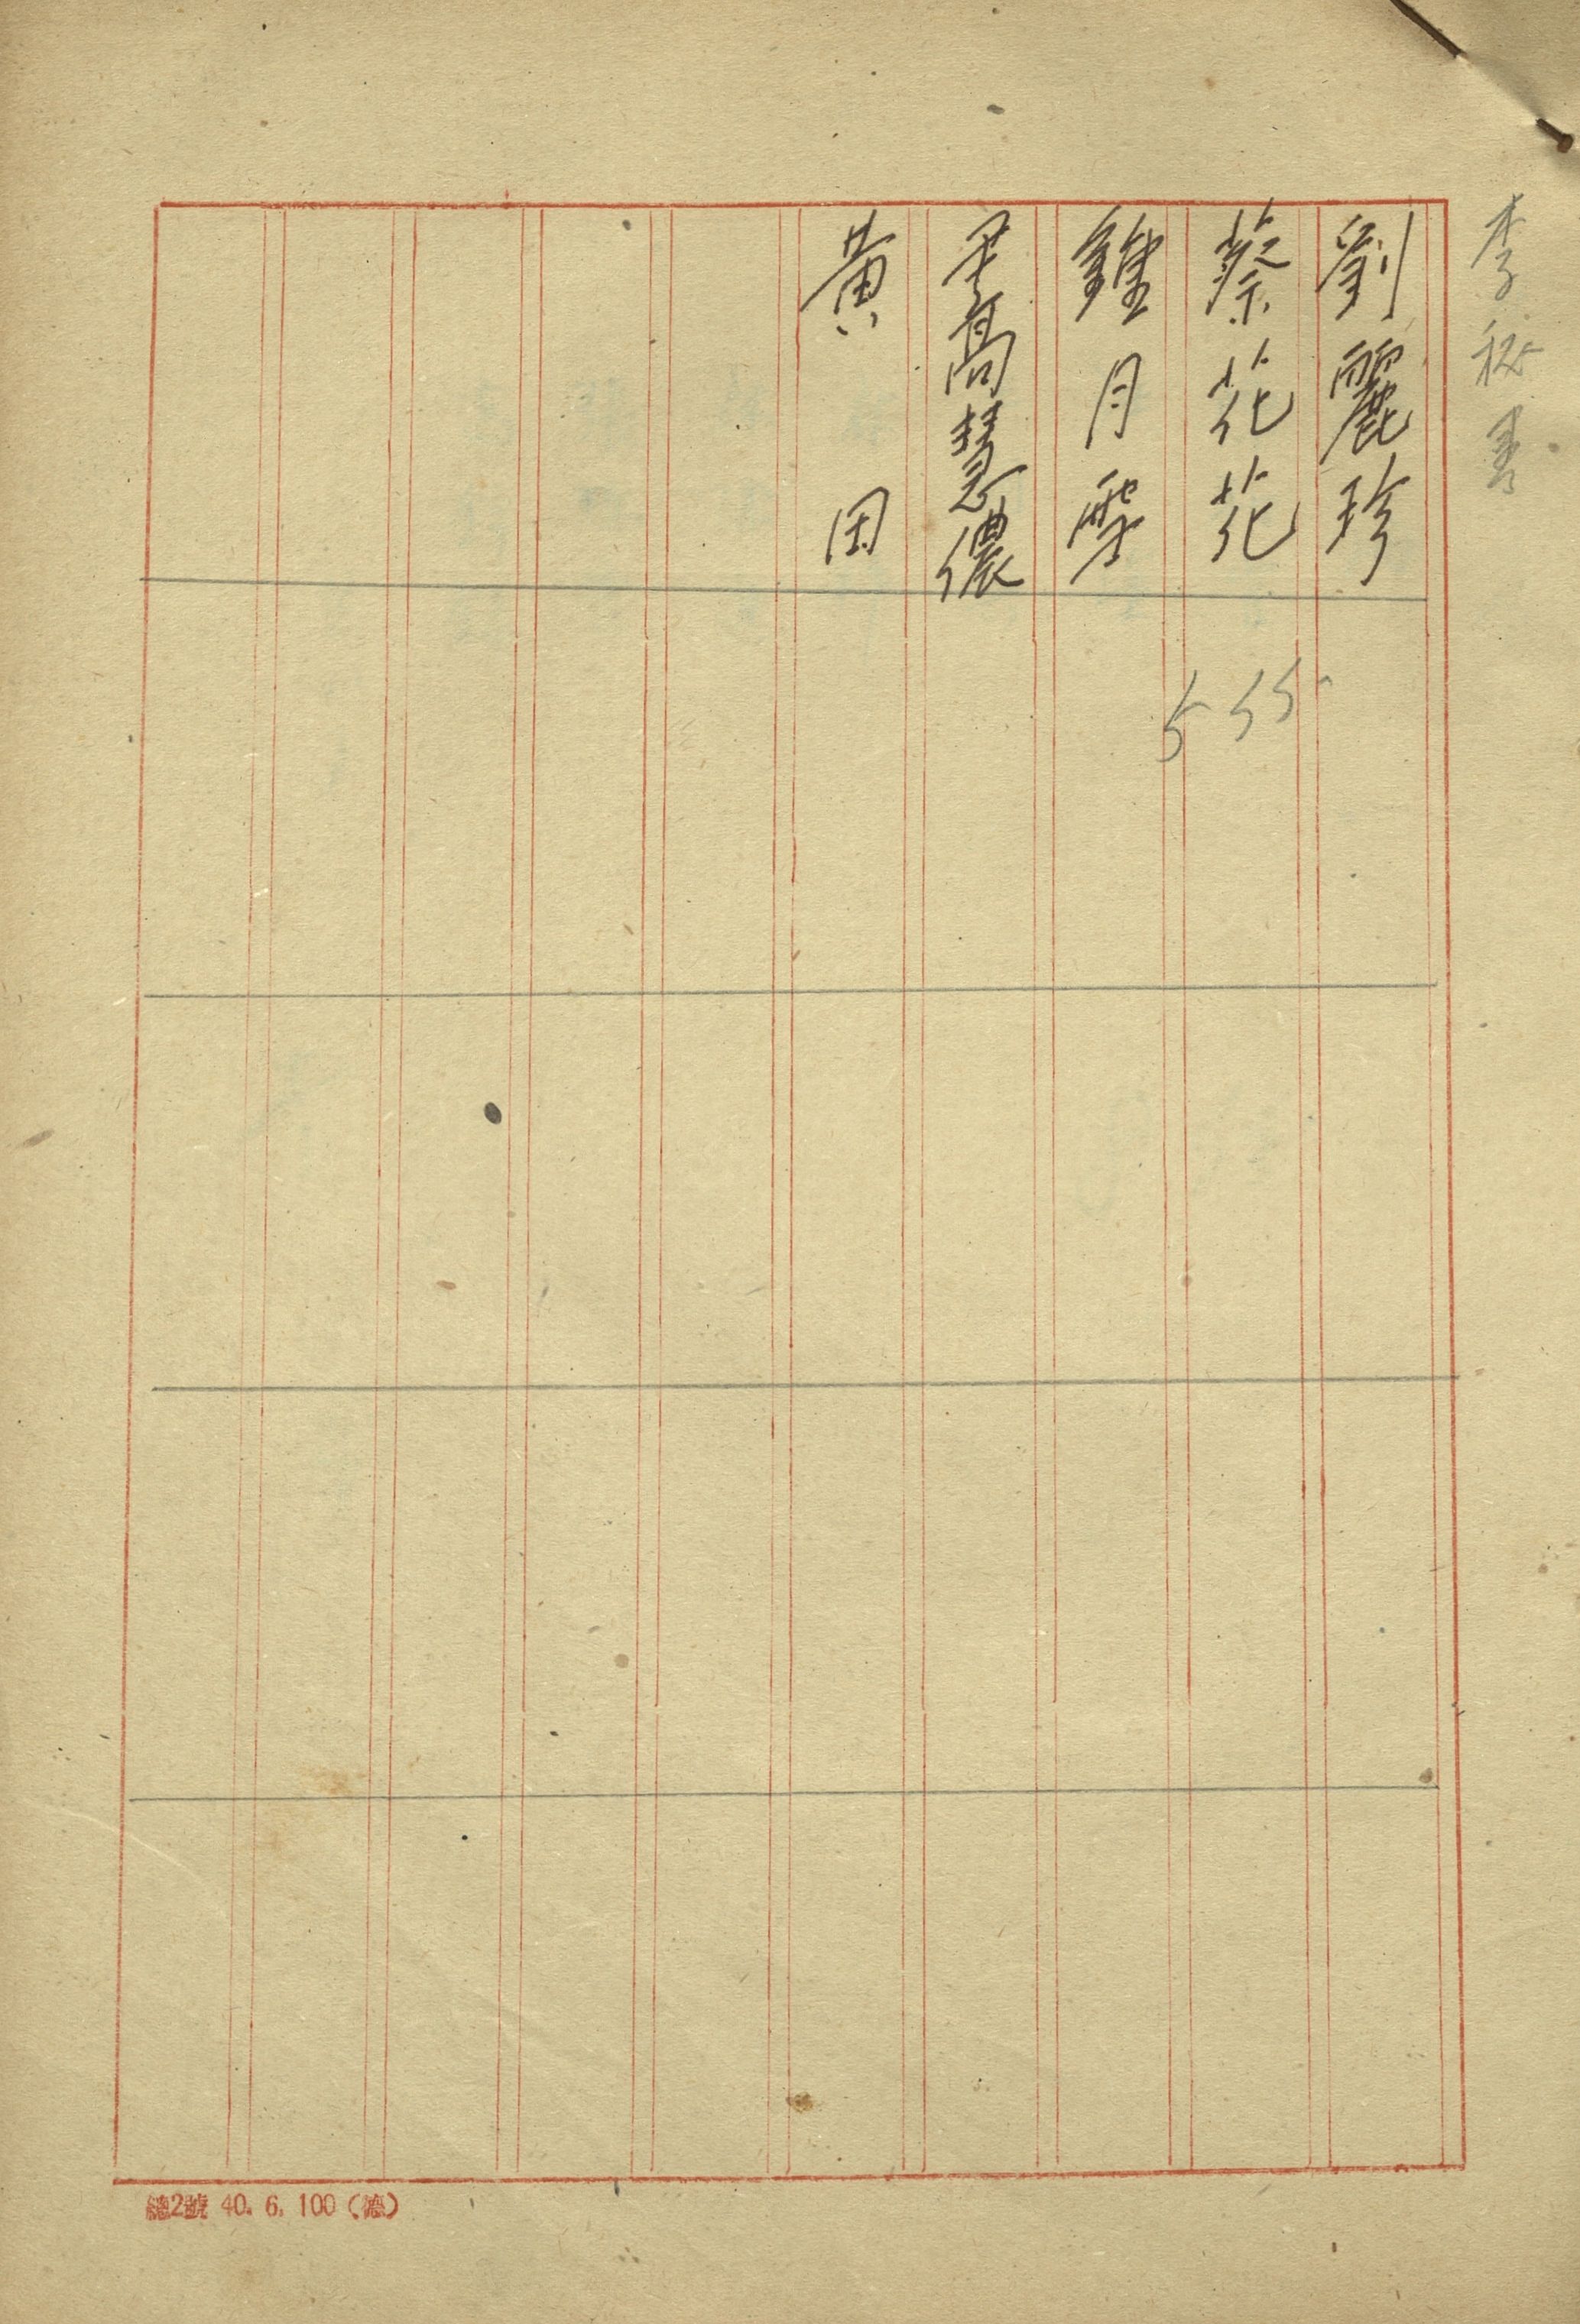 李秘書
劉麗珍
蔡花花
鍾月
高慧儂
黃
555
總2號 40. 6. 100